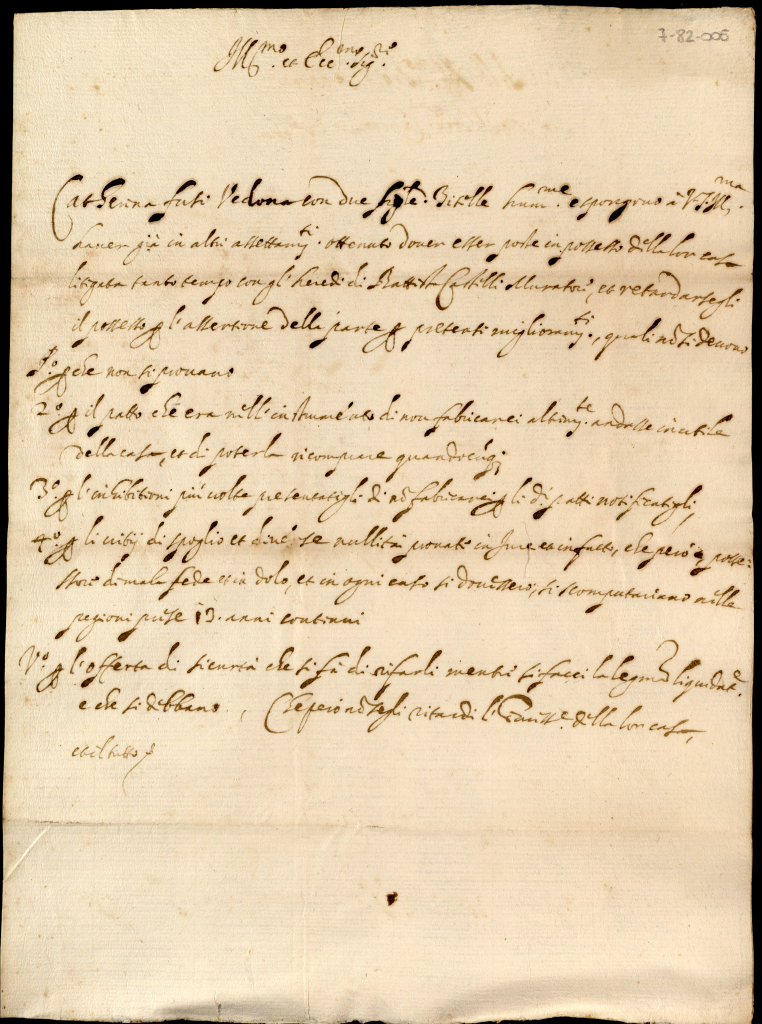 7-82-006
Ill.mo et Ecc.mo Sig.re
Catherina futi Vedova con due figle. Zitelle hum.me espongono à V.S. Ill.ma
haver già in altri assettam.ti ottenuto dover esser poste in possesso della lor casa
litigata tanto tempo con gl'heredi di Battista Castelli Muratori, et retardarsegli
il possesso p l'assertione della parte p pretenti miglioram.ti, quali nō si devono
P.o p che non si provano
2.o p il patto che era nell'instrumēto di non fabricarci altim.te andasse in utile
della casa, et di poterla ricomprare quandocūq;
3.o p l'inhibitioni più volte presentatigli di nō fabricarci p li dᵢ patti notificatigli,
4.o p li vitij di spoglio et diverse nullità provati in Jure et in facto, che però è posses:
sore di mala fede et in dolo, et in ogni caso si dovessero, si scomputariano nelle
pegioni prese 13. anni continui
V.o p l'offerta di sicurtà che si fà di rifarli mentre si facci la legma liquidat.e
e che si debbano, Che però nō segli ritardi l' della lor casa,
et il tutto